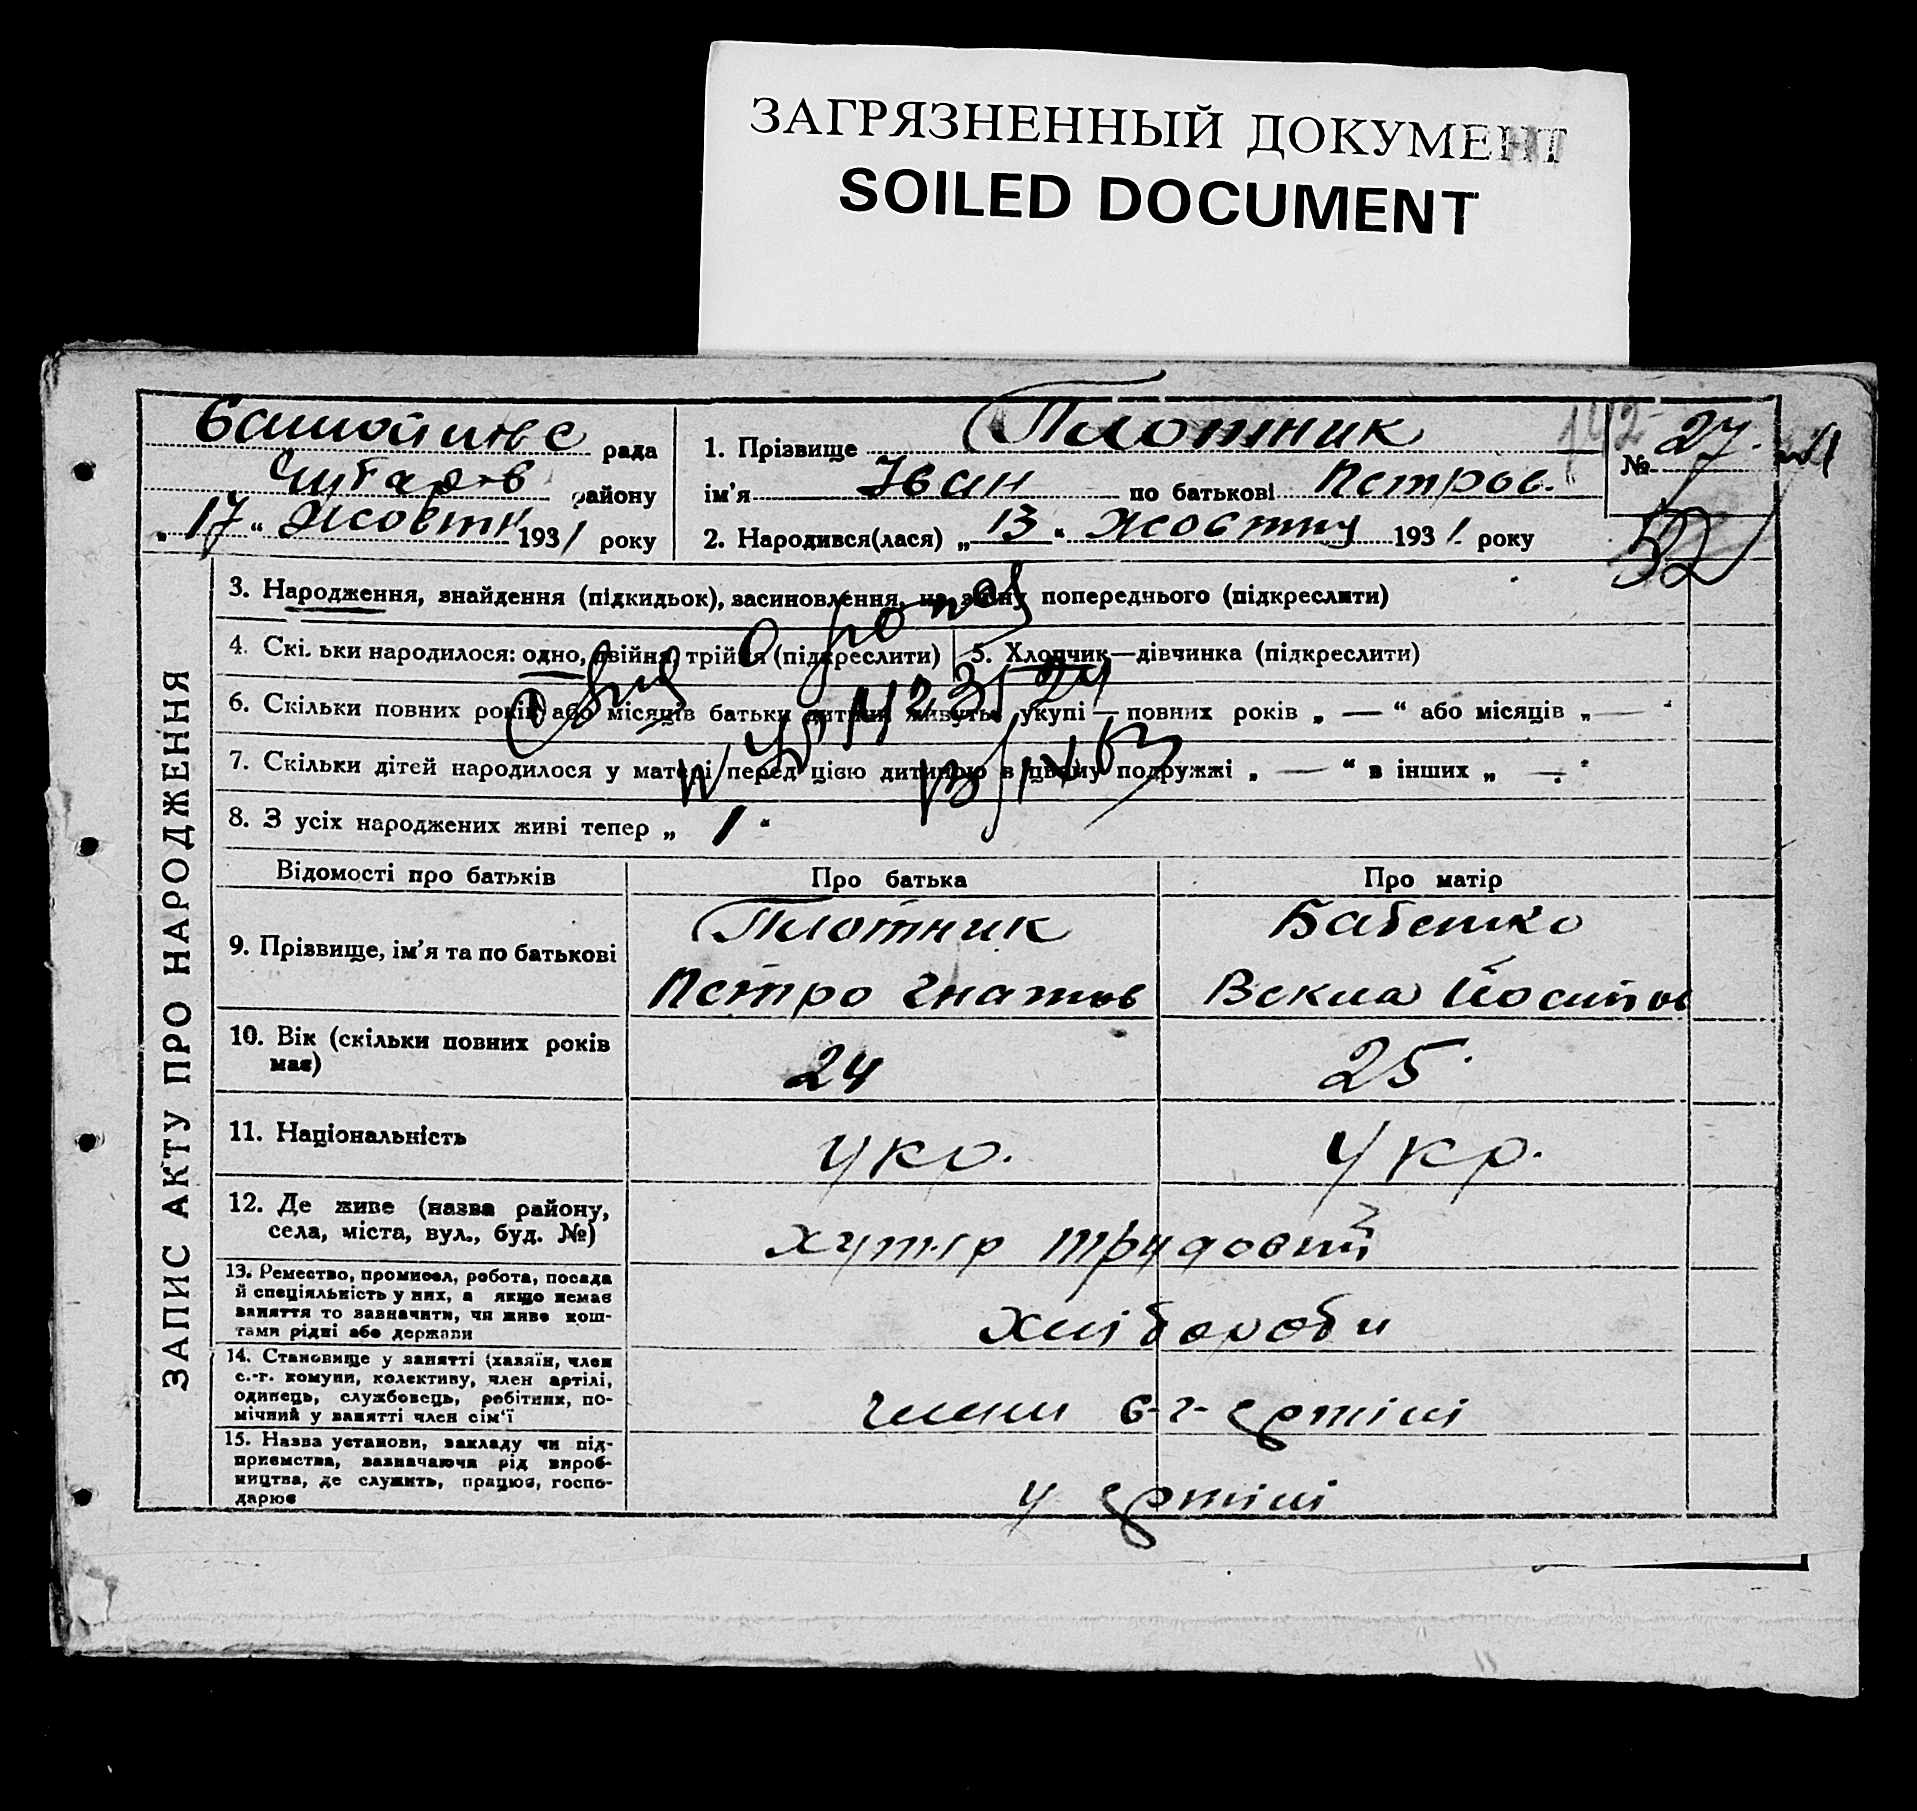 ЗАГРЯЗНЕННЫЙ ДОКУМЕНТ
SOILED DOCUMENT
рада
району
„ 17 “ Жовтн 1931 року
1. Прізвище Плотник
ім’я Іван по батькові Петров.
2. Народився(лася) „ 13 “ жовтну 1931. року
№ 27.
52
ЗАПИС АКТУ ПРО НАРОДЖЕННЯ
3. Народження, знайдення (підкидьок), засиновлення, на зміну попереднього (підкреслити)
4. Скільки народилося: одно, двійня, трійня (підкреслити)
5. Хлопчик—дівчинка (підкреслити)
6. Скільки повних років або місяців батьки дитини живуть укупі — повних років „ — “ або місяців „ — “
7. Скільки дітей народилося у матері перед цією дитиною в цьому подружжі „ — “ в інших „ — “
8. З усіх народжених живі тепер „ 1 “
Відомості про батьків
Про батька
Про матір
9. Прізвище, ім’я та по батькові
Плотник
Петро Гнатов
Бабенко
Векла Йосипов
10. Вік (скільки повних років має)
24
25
11. Національність
укр.
укр.
12. Де живе (назва району,
села, міста, вул., буд. №)
хутір Трудовий
13. Ремество, промисел, робота, посада
й спеціяльність у них, а якщо немає
заняття то зазначити, чи живе кош-
тами рідні або держави
Хлібороби
14. Становище у занятті (хазяїн, член
с.-г. комуни, колективу, член артілі,
одинець, службовець, робітник, по-
мічний у занятті член сім’ї
члени с-г- артілі
15. Назва установи, закладу чи під-
приємства, зазначаючи рід вироб-
ництва, де служить, працює, госпо-
дарює
у артілі